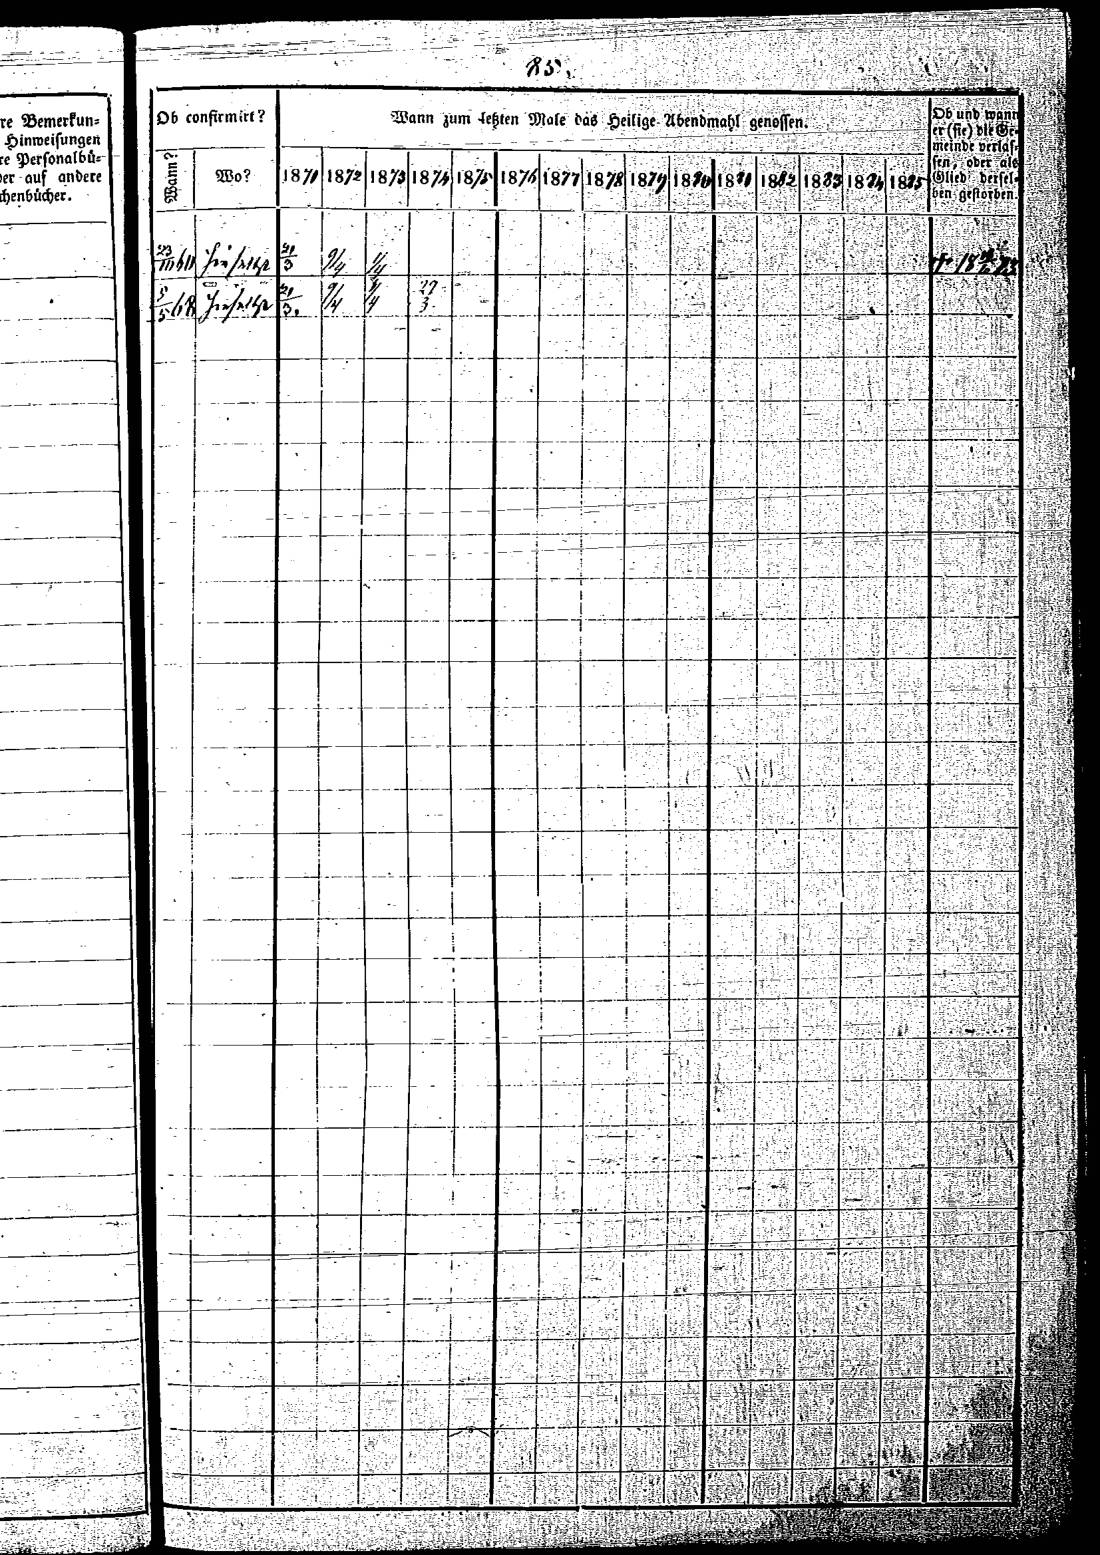 85.
re Bemerkun=
Hinweisungen
re Personalbü=
er auf andere
chenbücher.
Ob confirmirt?
Wann zum letzten Male das Heilige Abendmahl genossen.
Ob und wann
er (sie) die Ge=
meinde verlas=
sen, oder als
Glied dersel=
ben gestorben.
Wann? Wo? 1871 1872 1873 1874 1875 1876 1877 1878 1879 1880 1881 1882 1883 1884 1885
21/3 9/4 1/4
5/5 68 21/3. 9/4 1/4 27/3